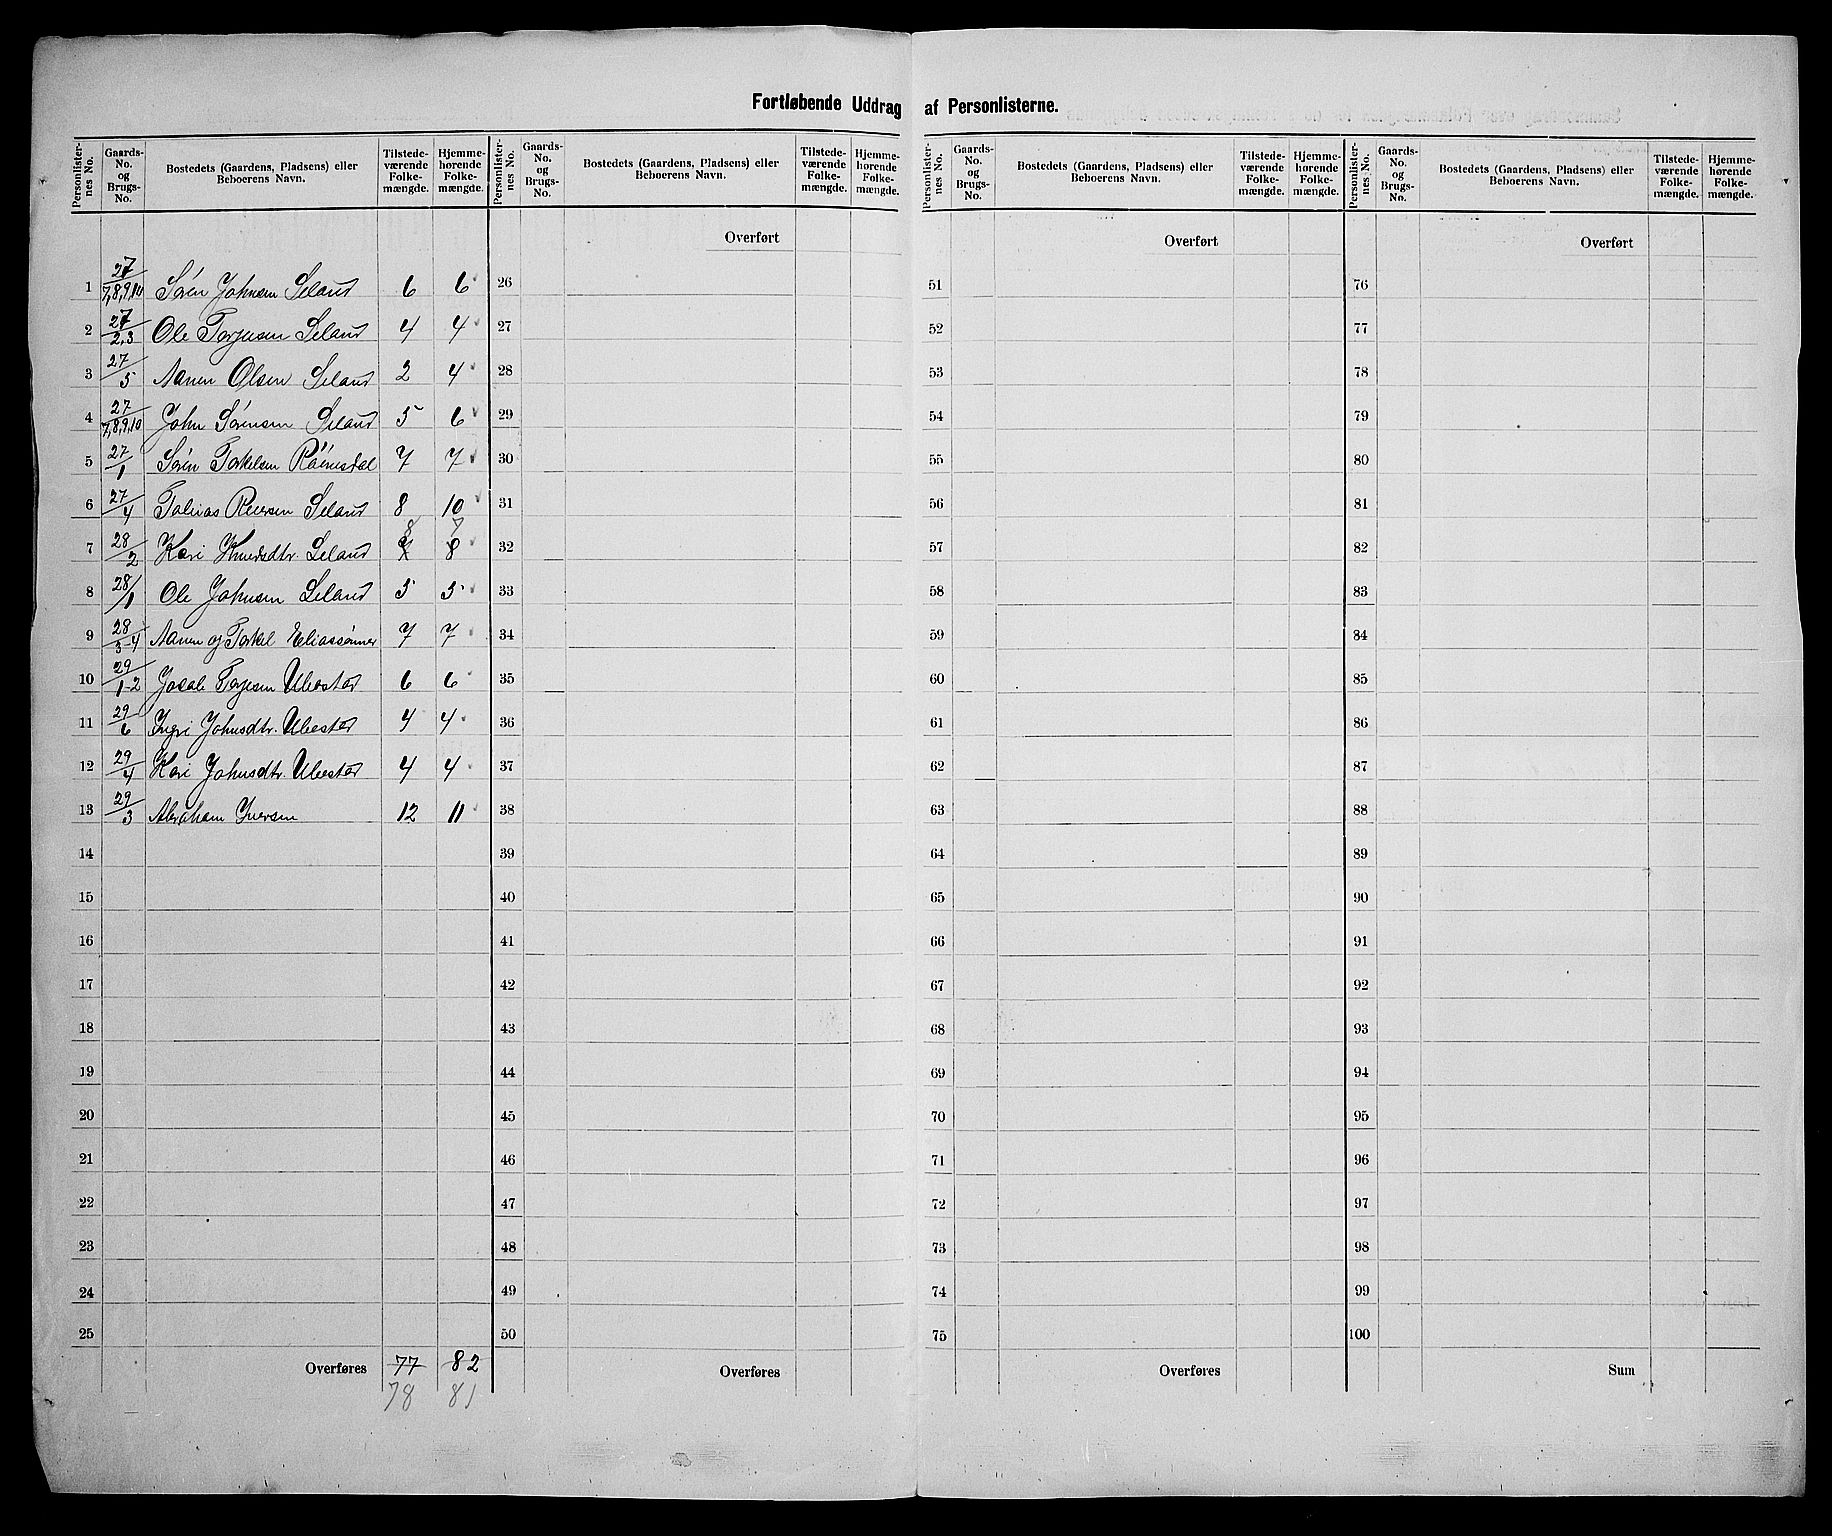 Fortløbende Uddrag af Personlisterne.
Personlisternes No. Gaards-No. og Brugs-No. Bostedets (Gaardens, Pladsens) eller Beboerens Navn. Tilstedeværende Folkemængde. Hjemmehørende Folkemængde.
Personlisternes No. Gaards-No. og Brugs-No. Bostedets (Gaardens, Pladsens) eller Beboerens Navn. Tilstedeværende Folkemængde. Hjemmehørende Folkemængde.
Personlisternes No. Gaards-No. og Brugs-No. Bostedets (Gaardens, Pladsens) eller Beboerens Navn. Tilstedeværende Folkemængde. Hjemmehørende Folkemængde.
Personlisternes No. Gaards-No. og Brugs-No. Bostedets (Gaardens, Pladsens) eller Beboerens Navn. Tilstedeværende Folkemængde. Hjemmehørende Folkemængde.
Overført Overført Overført
1 27/7,8,9,10 Sören Johnsen Seland 6 6 26 51 76
2 27/2,3 Ole Torjusen Seland 4 4 27 52 77
3 27/5 Aanen Olsen Seland 2 4 28 53 78
4 27/7,8,9,10 John Sörensen Seland 5 6 29 54 79
5 27/1 Sören Torkelsen 7 7 30 55 80
6 27/4 Tobias Reiersen Seland 8 10 31 56 81
8 7
7 28/2 Kari Knudsdtr. Seland 7 8 32 57 82
8 28/1 Ole Johnsen Seland 5 5 33 58 83
9 28/3-4 Aanen og Torkel Eliassönner 7 7 34 59 84
10 29/1-2 Jacob Torjesen Ubostad 6 6 35 60 85
11 29/6 Ingri Johnsdtr. Ubostad 4 4 36 61 86
12 29/4 Kari Johnsdtr. Ubostad 4 4 37 62 87
13 29/3 Abraham Iversen 12 11 38 63 88
14 39 64 89
15 40 65 90
16 41 66 91
17 42 67 92
18 43 68 93
19 44 69 94
20 45 70 95
21 46 71 96
22 47 72 97
23 48 73 98
24 49 74 99
25 50 75 100
Overføres 77 82 Overføres Overføres Sum
78 81